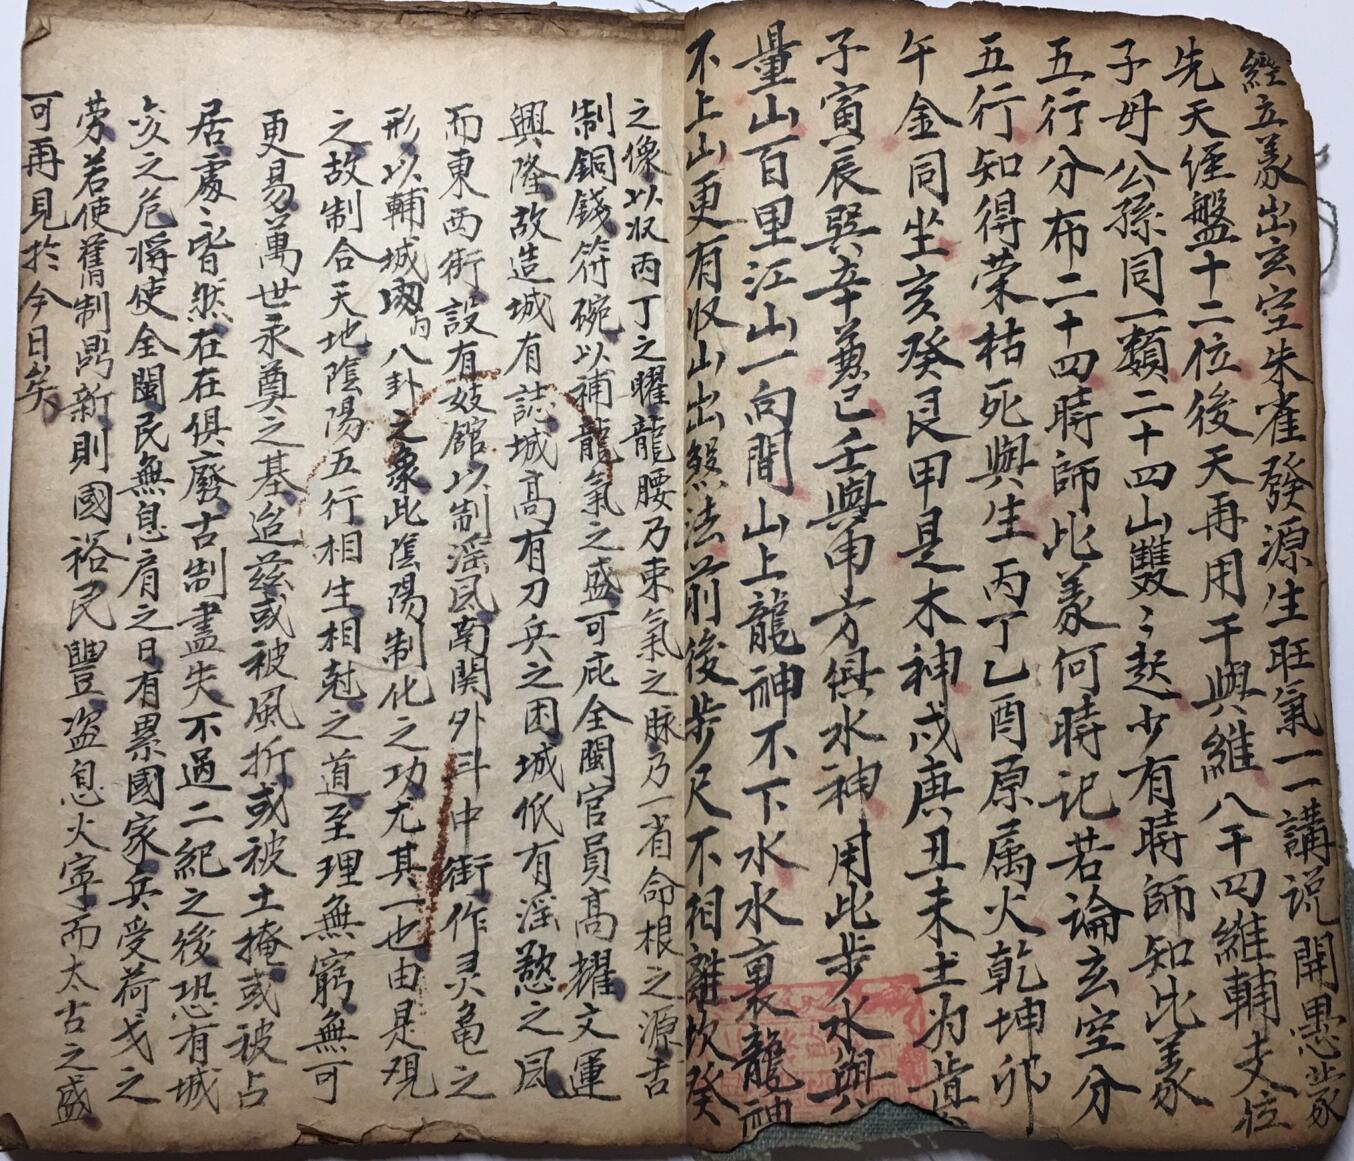 經立義出玄空朱雀發源生旺氣一一講説開愚蒙
先天徑盤十二位後天再用干與維八干四維輔支位
子母公孫同一類二十四山雙〻起少有時師知此義
五行分布二十四時師此義何時記若論玄空分
五行知得荣枯死與生丙丁乙酉原属火乾坤卯
午金同坐亥癸艮甲是木神戍庚丑未土为
子寅辰巽辛兼已壬與申方俱水神用此步水與
量山百里江山一向間山上龍神不下水水裏龍神
不上山更有収山出煞法前後步尺不相離坎癸
之像以収丙丁之曜龍腰乃東氣之脉乃一省命根之源古
制銅錢符碗以補龍氣之盛可庇全閩官員高擢文運
興隆故造城有誌城高有刀兵之困城低有滛慾之風
而東西街設有妓舘以制滛風南関外斗中街作灵龜之
形以輔城内八卦之象此隂陽制化之功尤其一也由是观
之故制合天地隂陽五行相生相尅之道至理無窮無可
更易萬世永奠之基迨兹或被風折或被土掩或被占
居處〻皆然在在俱廢古制盡失不過二紀之後恐有城
亥之危將使全閩民無息肩之日有累國家兵受荷戈之
劳若使舊制鼎新則國裕民豐盗息火寜而太古之盛
可再見於今日矣